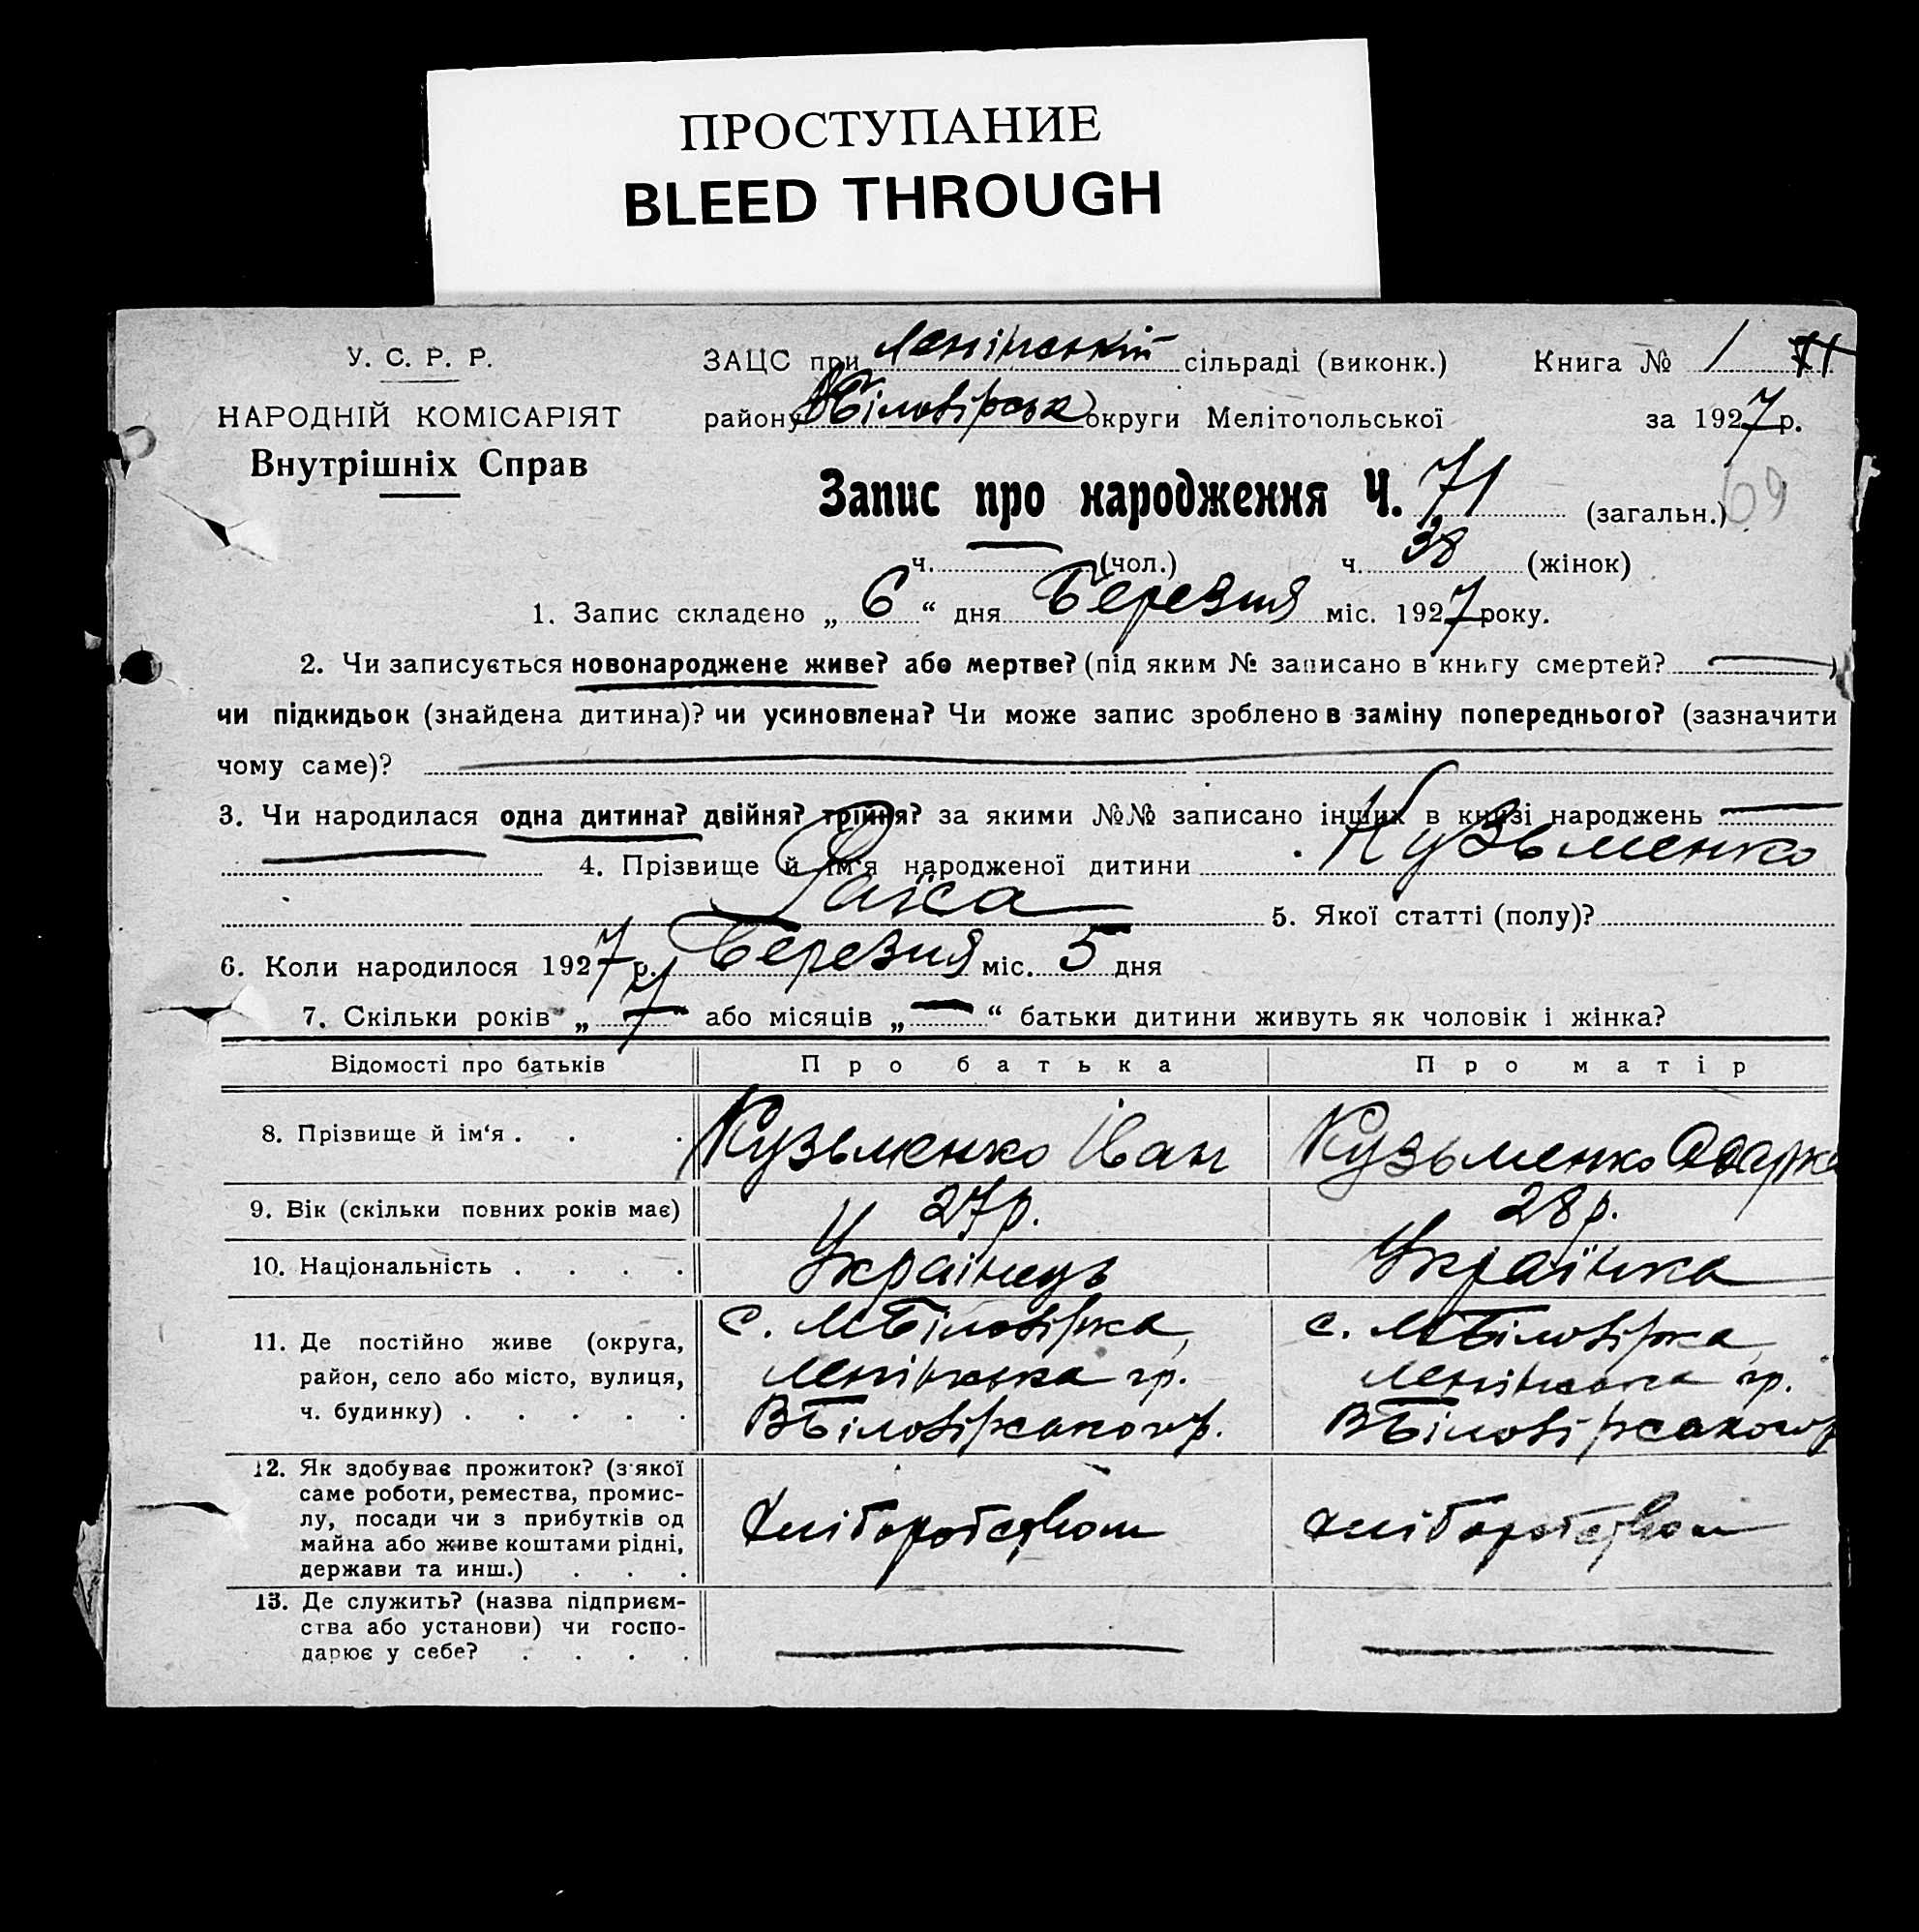 ПРОСТУПАНИЕ
BLEED THROUGH
У. С. Р. Р.
НАРОДНІЙ КОМІСАРІЯТ
Внутрішніх Справ
ЗАЦС при Ленінській сільраді (виконк.) Книга № 1
району ВБіловірськ округи Мелітопольської за 1927 р.
Запис про народження Ч. 71 (загальн.) 69
ч. (чол.) ч. 38 (жінок)
1. Запис складено „ 6 “ дня Березня міс. 1927 року.
2. Чи записується новонароджене живе? або мертве? (під яким № записано в книгу смертей? )
чи підкидьок (знайдена дитина)? чи усиновлена? Чи може запис зроблено в заміну попереднього? (зазначити
чому саме)?
3. Чи народилася одна дитина? двійня? трійня? за якими №№ записано інших в книзі народжень
4. Прізвище й ім'я народженої дитини Кузьменко
Раїса 5. Якої статті (полу)?
6. Коли народилося 1927 р. Березня міс. 5 дня
7. Скільки років „ 7 “ або місяців „ — “ батьки дитини живуть як чоловік і жінка?
Відомості про батьків Про батька Про матір
8. Прізвище й ім‘я . . . Кузьменко Іван Кузьменко Одарка
9. Вік (скільки повних років має) 27 р. 28 р.
10. Національність . . . . Українець Українка
11. Де постійно живе (округа, с. МБіловірка, с. МБіловірка,
район, село або місто, вулиця, Ленінська гр. Ленінська гр.
ч. будинку) . . . . . ВБіловірського р. ВБіловірського р
12. Як здобуває прожиток? (з якої
саме роботи, ремества, промис-
лу, посади чи з прибутків од Хліборобством Хліборобством
майна або живе коштами рідні,
держави та инш.) . . .
13. Де служить? (назва підприєм-
ства або установи) чи госпо-
дарює у себе? . . . .